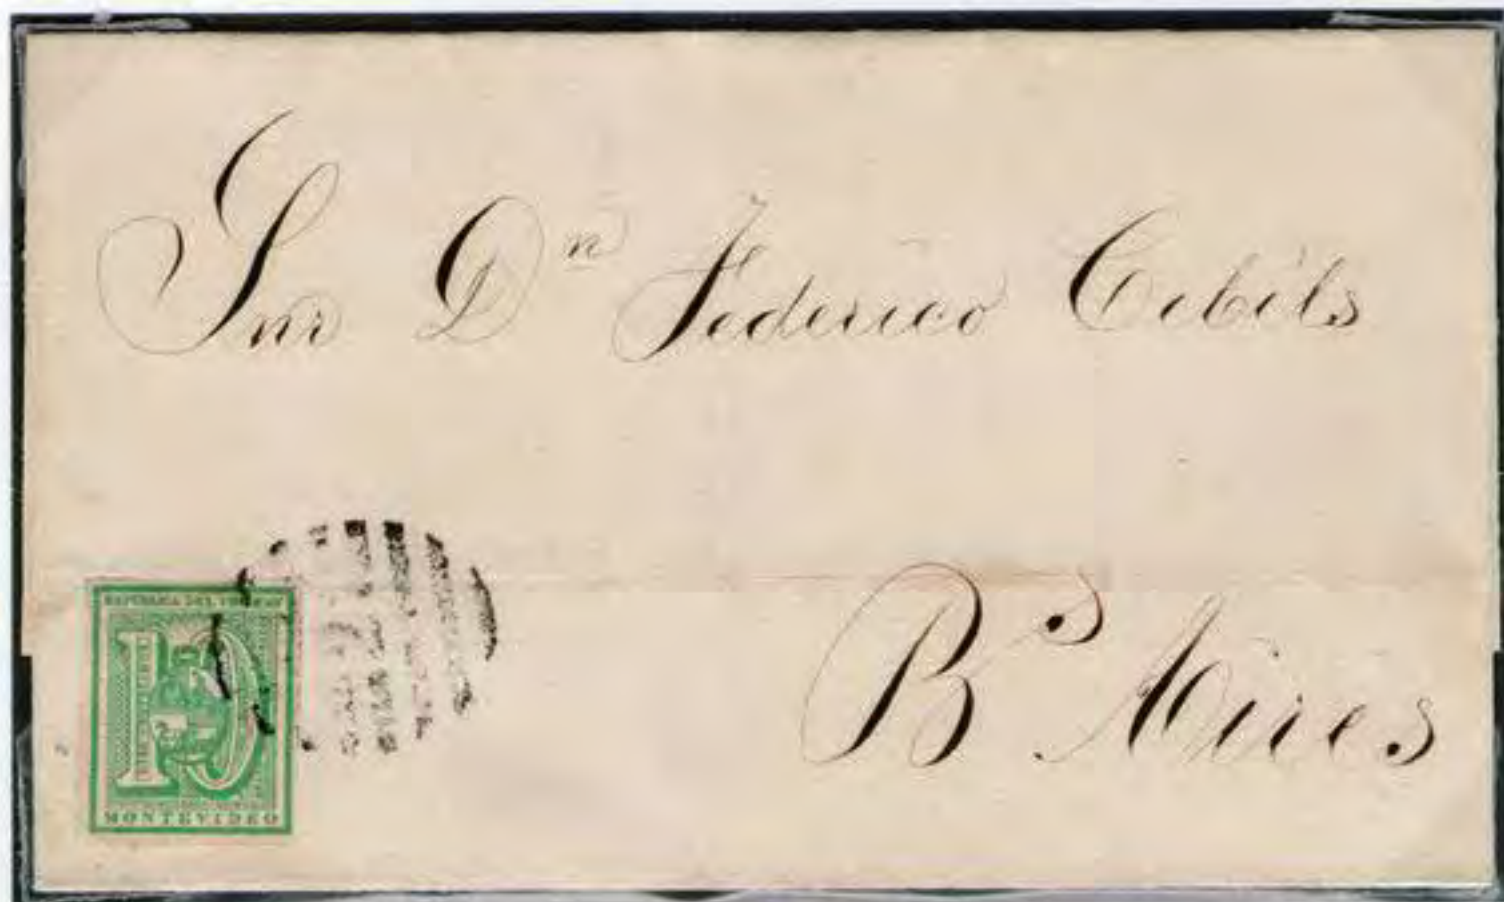 Snr Dn Federico Cibils
Bs Aires
REPUBLICA DEL URUGUAY
10
MONTEVIDEO